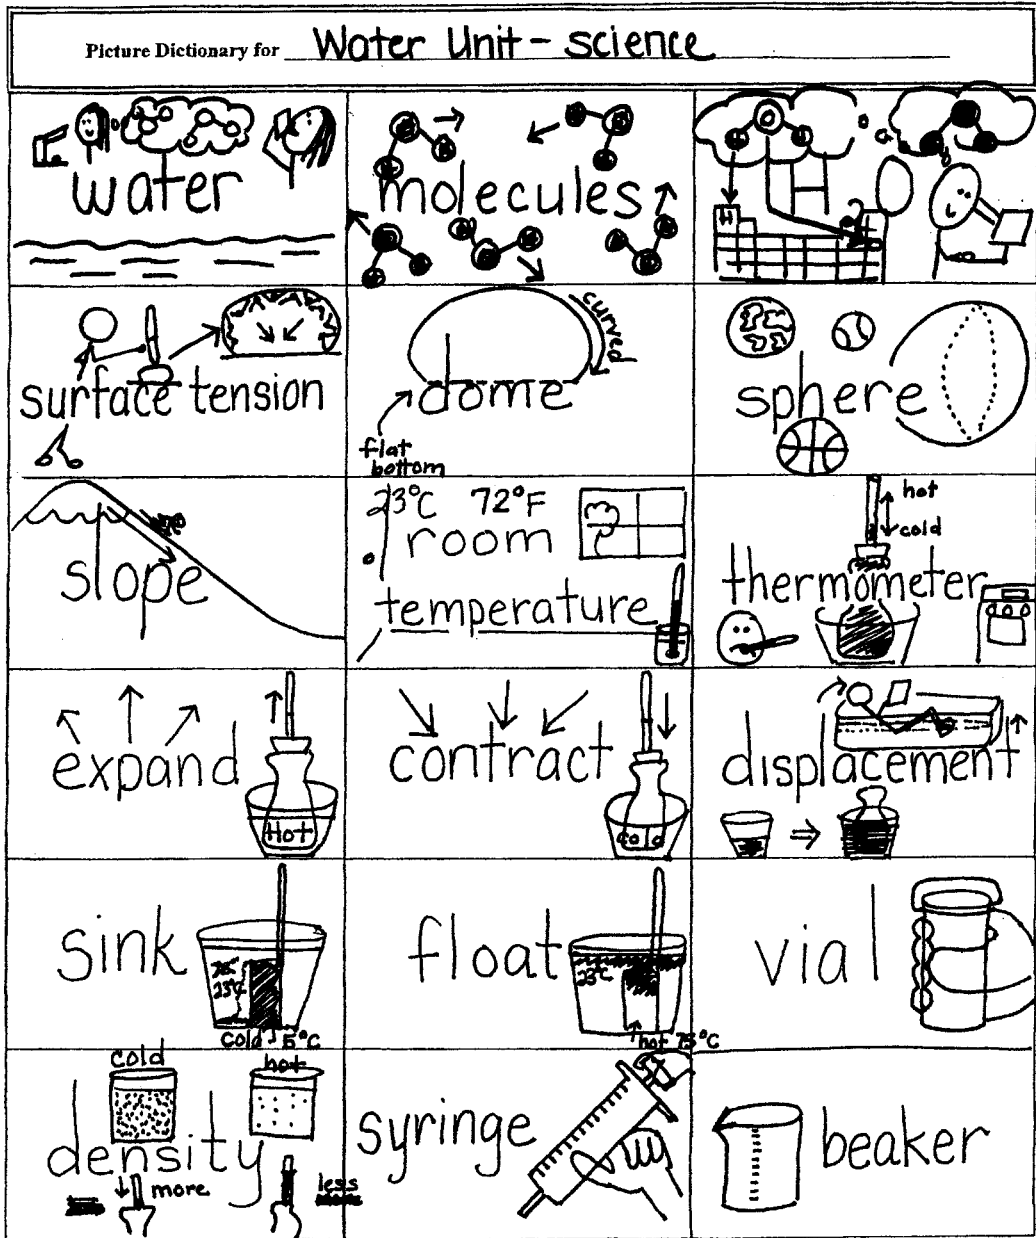 Picture Dictionary for Water Unit - science
water
molecules
H
surface tension
dome
curved
flat
bottom
sphere
slope
23°C 72°F
room
temperature
hot
cold
thermometer
expand
Hot
contract
cold
displacement
sink
23°C
cold 5°C
float
23°C
hot 75°C
vial
cold
hot
density
more
less
syringe
beaker